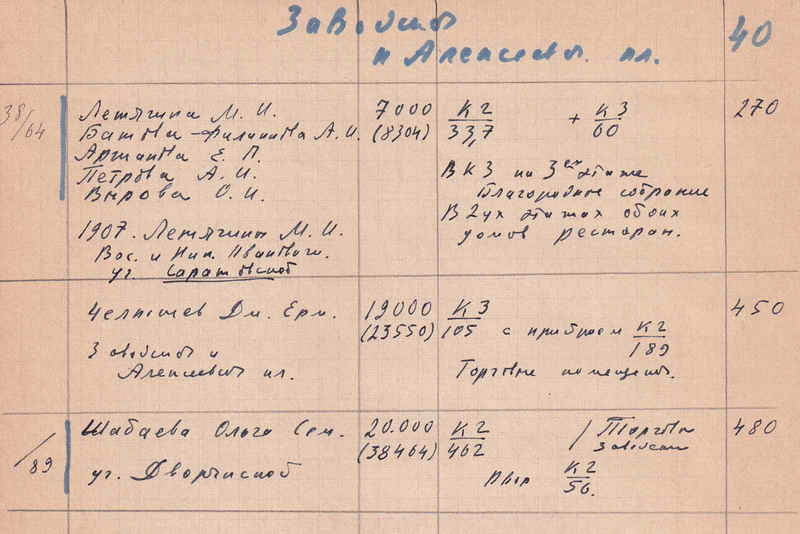 Заводская
и Алексеевск. пл.
40
38/64
Летягина М. И. 7000 К2/33,7 + К3/60 270
Батова-Филиппова А. И. (8304)
Аржанова Е. П.
Петрова А. И.
Вырова О. И.
В К3 на 3ем этаже
Благородное собрание
В 2ух этажах обоих
домов ресторан.
1907. Летягины М. И.
Вас. и Ник. Ивановичи.
уг. Саратовской
Челышев Дм. Ерм. 19000 К3/105 с прибоем К2/189 450
(23550)
Заводская и
Алексеевск пл.
Торговые помещения.
/89
Шабаева Ольга Сем. 20.000 К2/462 480
(38464)
уг. Дворянской
двор К2/56.